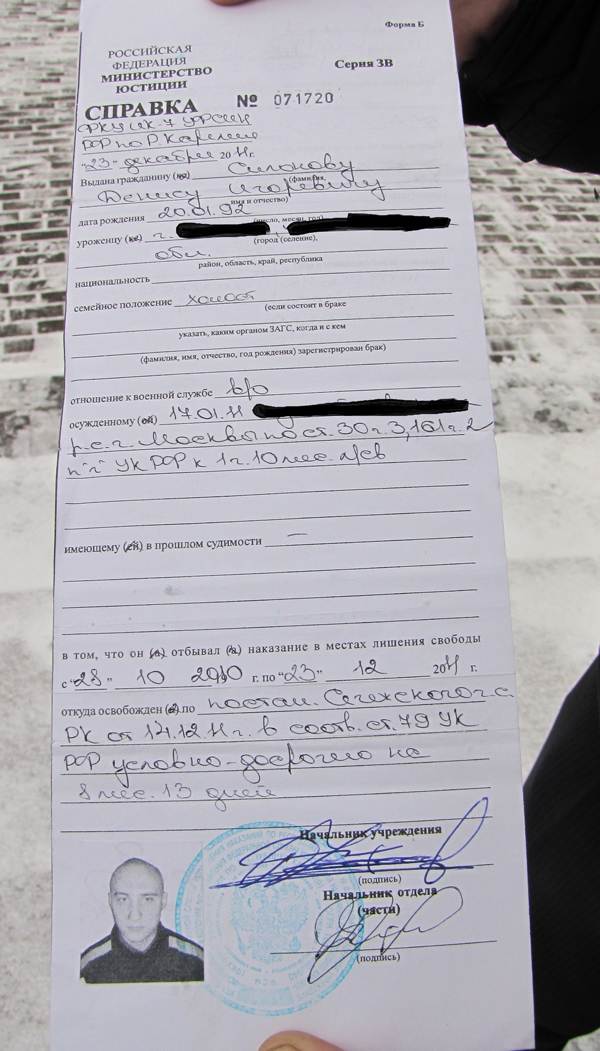 Форма Б
РОССИЙСКАЯ
ФЕДЕРАЦИЯ
МИНИСТЕРСТВО
ЮСТИЦИИ
Серия ЗВ
СПРАВКА № 071720
ФКУ ИК-7 УФСИН
РФ по Р. Карелия
"23" декабря 2011г.
Выдана гражданину (ке) Силокову
(фамилия,
Денису Игоревичу
имя и отчество)
дата рождения 20.01.92
(число, месяц, год)
уроженцу (ке) г.
(город (селение),
обл.
район, область, край, республика
национальность
семейное положение холост
(если состоит в браке
указать, каким органом ЗАГС, когда и с кем
(фамилия, имя, отчество, год рождения) зарегистрирован брак)
отношение к военной службе в/о
осужденному (ой) 17.01.11
р.с. г. Москвы по ст. 30 ч. 3, 161 ч. 2
п "г" УК РФ к 1 г. 10 мес. л/св
имеющему (ей) в прошлом судимости —
в том, что он (а) отбывал (а) наказание в местах лишения свободы
с "28" 10 2010 г. по "23" 12 2011 г.
откуда освобожден (а) по постан. Сегежского г.с.
РК от 14.12.11 г. в соотв. ст. 79 УК
РФ условно-досрочно на
8 мес. 13 дней
Начальник учреждения
(подпись)
Начальник отдела
(части)
(подпись)